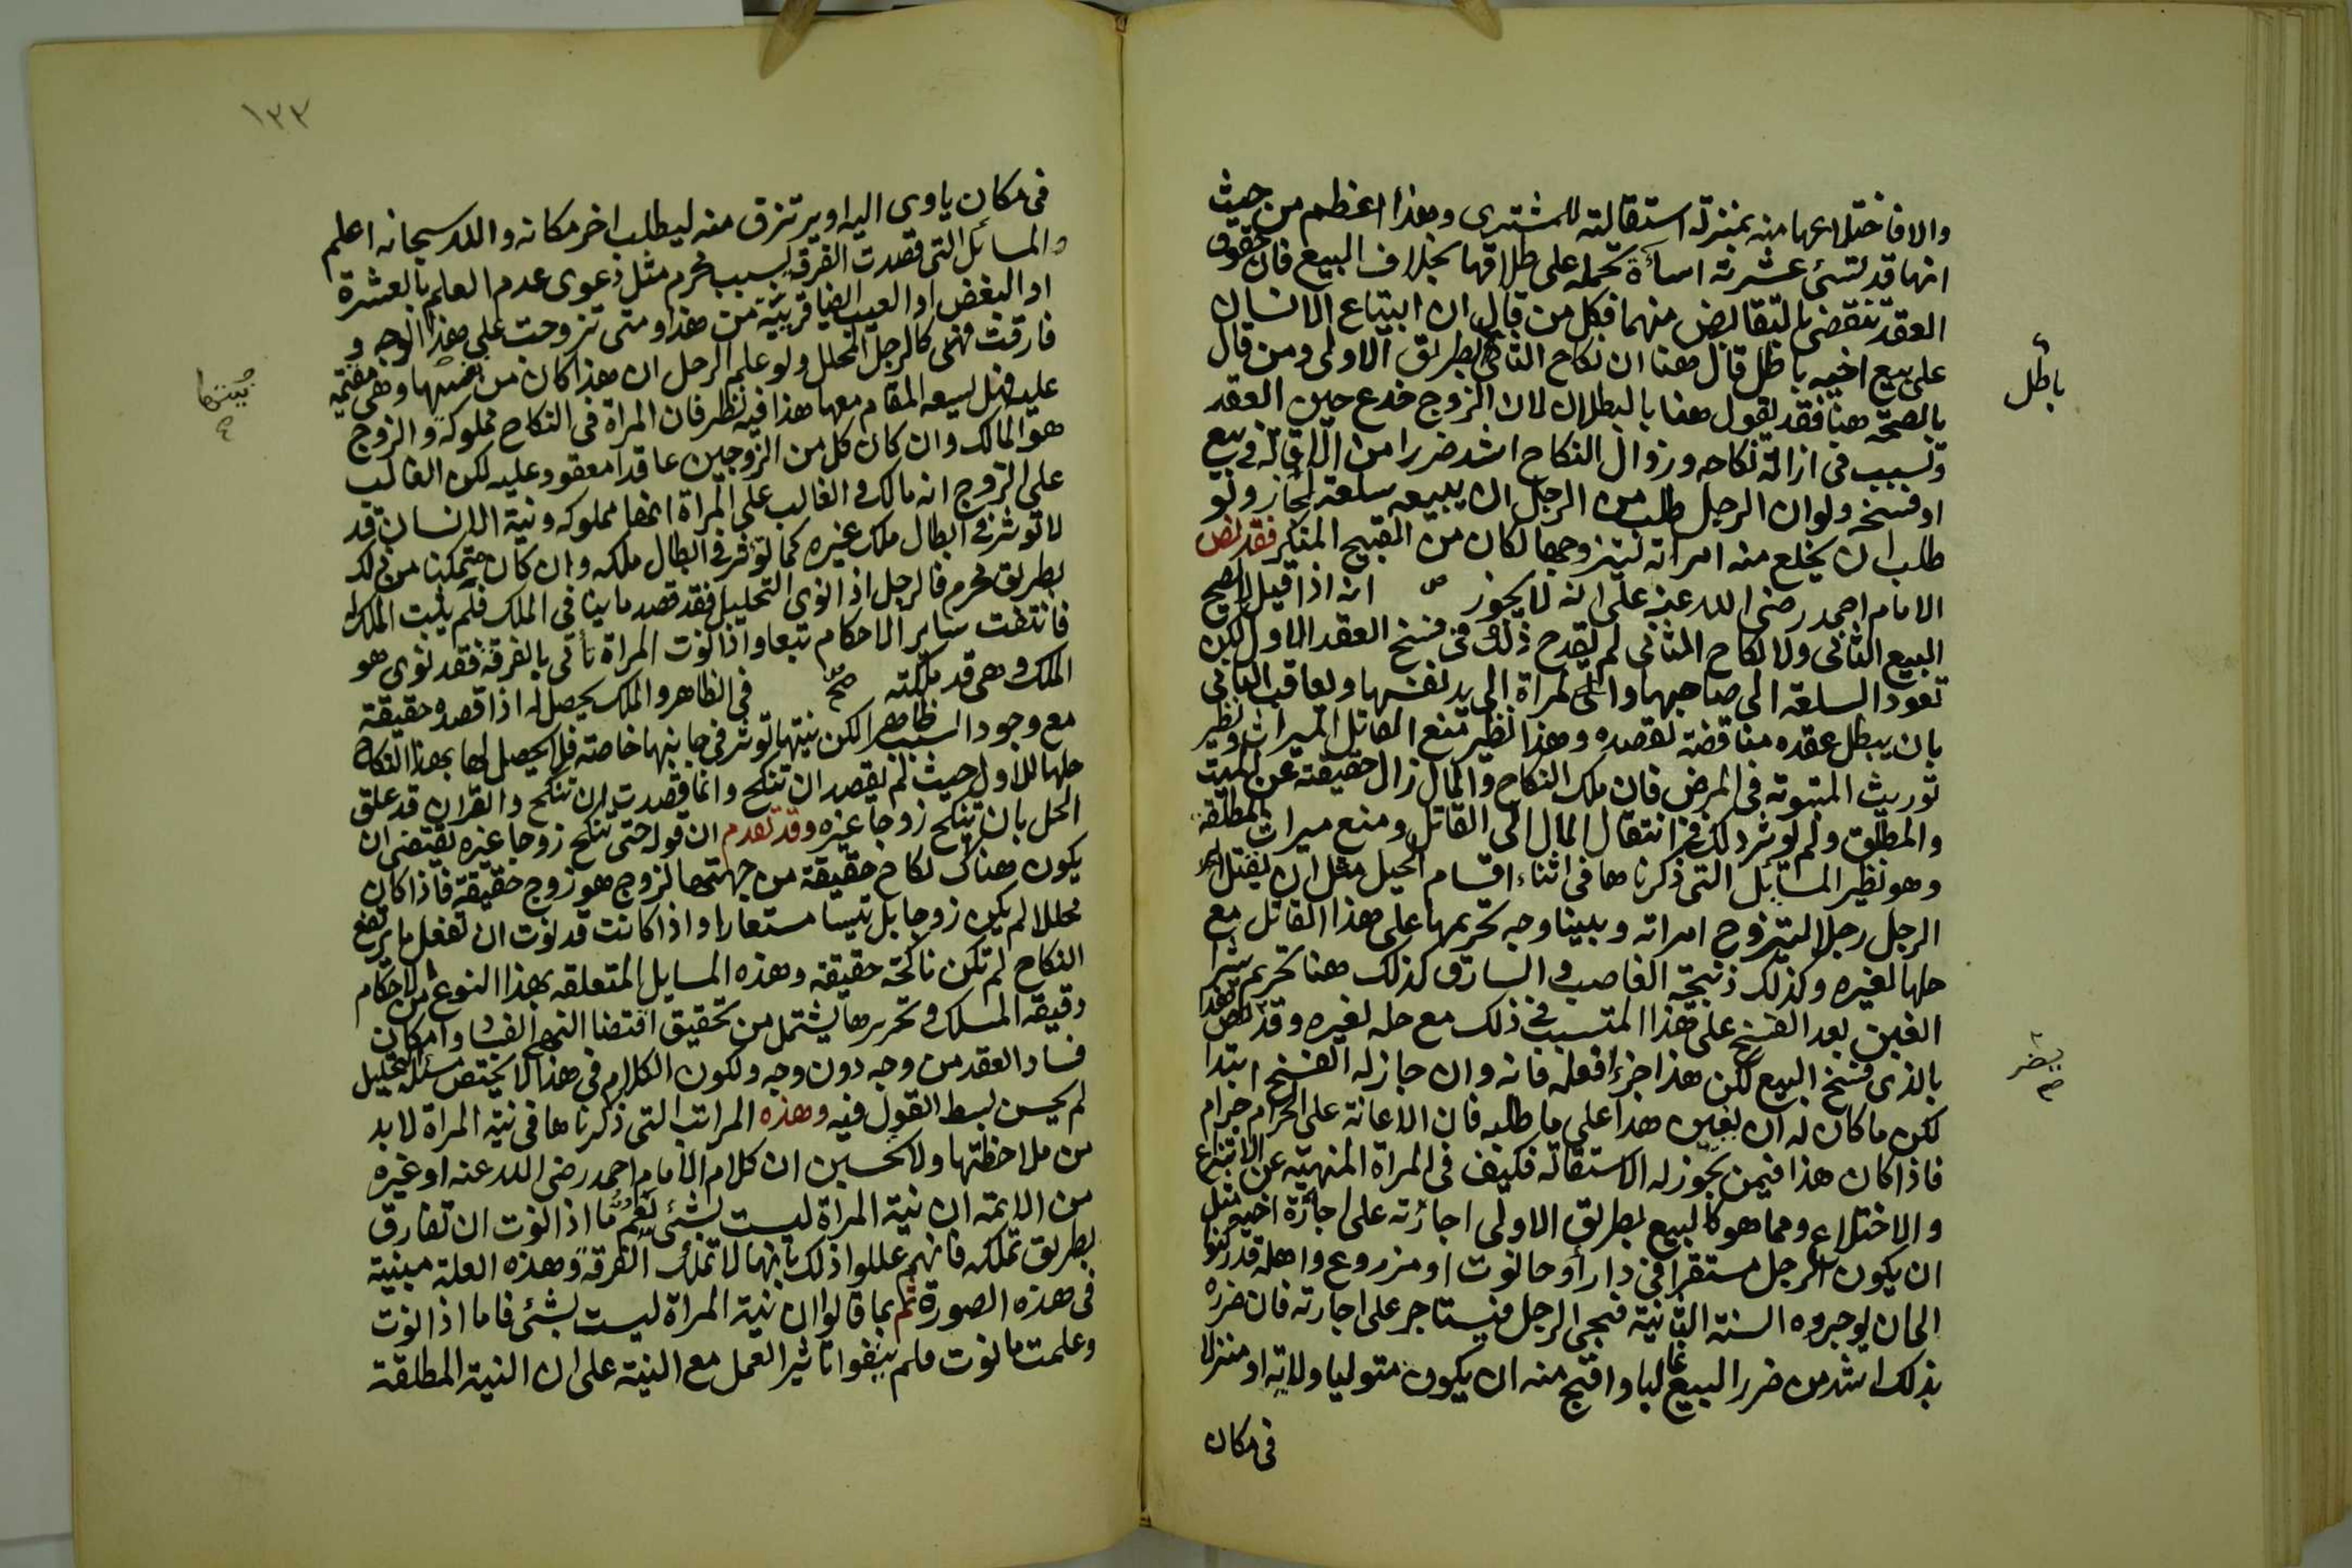 والا فاختلاعها منه بمنزلة استقالته للمشترى وهذا اعظم من حيث
انها قد تسئ عشرته اساءة تحمله على طلاقها بخلاف البيع فان حقوق
العقد تنقضى بالتقابض منهما فكل من قال ان ابتياع الانسان
على بيع اخيه باطل قال هنا ان نكاح الثانى بطريق الاولى ومن قال
باطل
بالصحة هنا فقد نقول هنا بالبطلان لان الزوج خدع حين العقد
وتسبب فى ازالة نكاحه وزوال النكاح اشد ضررا من الاقالة فى بيع
او فسخه ولو ان الرجل طلب من الرجل ان يبيعه سلعة لجاز ولو
طلب ان يخلع منه امراته ليتزوجها لكان من القبيح المنكر فقد نص
الامام احمد رضى الله عنه على انه لا يجوز انه اذا قيل لا يصح
البيع الثانى ولا نكاح الثانى لم يقدح ذلك فى فسخ العقد الاول لكن
تعود السلعة الى صاحبها والمراة الى يد نفسها ويعاقب الثانى
بان يبطل عقده مناقضة لقصده وهذا نظير منع القاتل الميراث ونظير
توريث المبتوتة فى المرض فان ملك النكاح والمال زال حقيقة عن الميت
والمطلق ولم يوثر ذلك فى انتقال المال الى القاتل ومنع ميراث المطلقة
وهو نظير المسائل التى ذكرناها فى اثناء اقسام الحيل مثل ان يقتل
الرجل رجلا ليتزوج امراته وبينا وجه تحريمها على هذا القاتل مع
حلها لغيره وكذلك ذبيحة الغاصب والسارق كذلك هنا تحريم شرا
العين بعد الفسخ على هذا المتسبب فى ذلك مع حله لغيره وقد هذا
يضر صح
بالذى فسخ البيع لكن هذا جزا فعله فانه وان جاز له الفسخ ابتدا
لكن ما كان له ان يعين هذا على ما طلبه فان الاعانة على الحرام حرام
فاذا كان هذا فيمن يجوز له الاستقالة فكيف فى المراة المنهية عن الانتزاع
والاختلاع ومما هو كالبيع بطريق الاولى اجارته على اجارة اخيه مثل
ان يكون الرجل مستقرا فى دار او حانوت او مزروع واهله قد ركنوا
الى ان يوجروه السنة الثانية فيجى الرجل فيستاجر على اجارته فان ضرره
بذلك اشد من ضرر البيع غالبا واقبح منه ان يكون متوليا ولاية او منزلا
فى مكان
١٣٣
فى مكان ياوى اليه او يرتزق منه ليطلب اخر مكانه والله سبحانه اعلم
والمسائل التى قصدت الفرقة بسبب محرم مثل دعوى عدم العلم بالعشرة
او البغض او العيب ايضا قريبة من هذا ومتى تزوجت على هذا الوجه و
فارقت فهى كالرجل المحلل ولو علم الرجل ان هذا كان من وهى مقيمة
نيتها صح
عليه فهل يسعه المقام معها هذا فيه نظر فان المراة فى النكاح مملوكة والزوج
هو المالك وان كان كل من الزوجين عاقدا معقود عليه لكن الغالب
على الزوج انه مالك والغالب على المراة انها مملوكه ونية الانسان قد
لا توثر فى ابطال ملك غيره كما توثر فى ابطال ملكه وان كان متمكنا من ذلك
بطريق محرم فالرجل اذا نوى التحليل فقد قصد ما ينافى الملك فلم يثبت الملك
فانتفت سائر الاحكام تبعا واذا نوت المراة تاتى بالفرقة فقد نوى هو
الملك وهى قد ملكته فى الظاهر والملك يحصل له اذا قصده حقيقة
مع وجود السبب ظاهرا لكن نيتها توثر فى جانبها خاصة فلا يحصل لها بهذا النكاح
حلها للاول حيث لم يقصد ان تنكح وانما قصدت ان تنكح والقران قد علق
الحل بان تنكح زوجا غيره وقد تقدم ان قوله حتى تنكح زوجا غيره يقتضى ان
يكون هناك نكاح حقيقة من جهتها لزوج هو زوج حقيقة فاذا كان
محللا لم يكن زوجا بل تيسا مستعارا واذا كانت قد نوت ان تفعل ما يرفع
النكاح لم تكن ناكحة حقيقة وهذه المسايل المتعلقة بهذا النوع من الاحكام
دقيقة المسلك وتحريرها يشتمل من تحقيق اقتضا النهى الفساد وامكان
فساد العقد من وجه دون وجه ولكون الكلام فى هذا لا يختص مسئلة التحليل
لم يحسن بسط القول فيه وهذه المراتب التى ذكرناها فى نية المراة لا بد
من ملاحظتها ولا تحسبن ان كلام الامام احمد رضى الله عنه او غيره
من الايمة ان نية المراة ليست بشئ يعم ما اذا نوت ان تفارق
بطريق تملكه فانهم عللوا ذلك بانها لا تملك الفرقة وهذه العلة مبنية
فى هذه الصورة ثم انما قالوا ان نية المراة ليست بشئ فاما اذا نوت
وعلمت ما نوت فلم ينفوا تاثير العمل مع النية على ان النية المطلقة